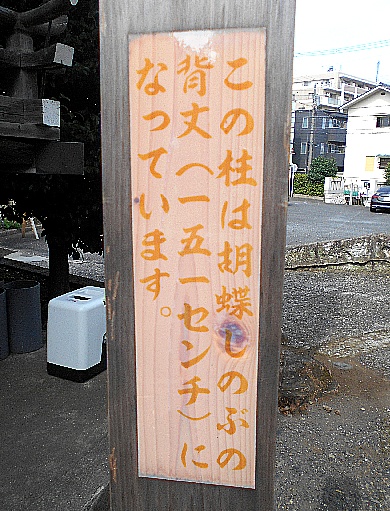 この柱は胡蝶しのぶの
背丈(一五一センチ)に
なっています。